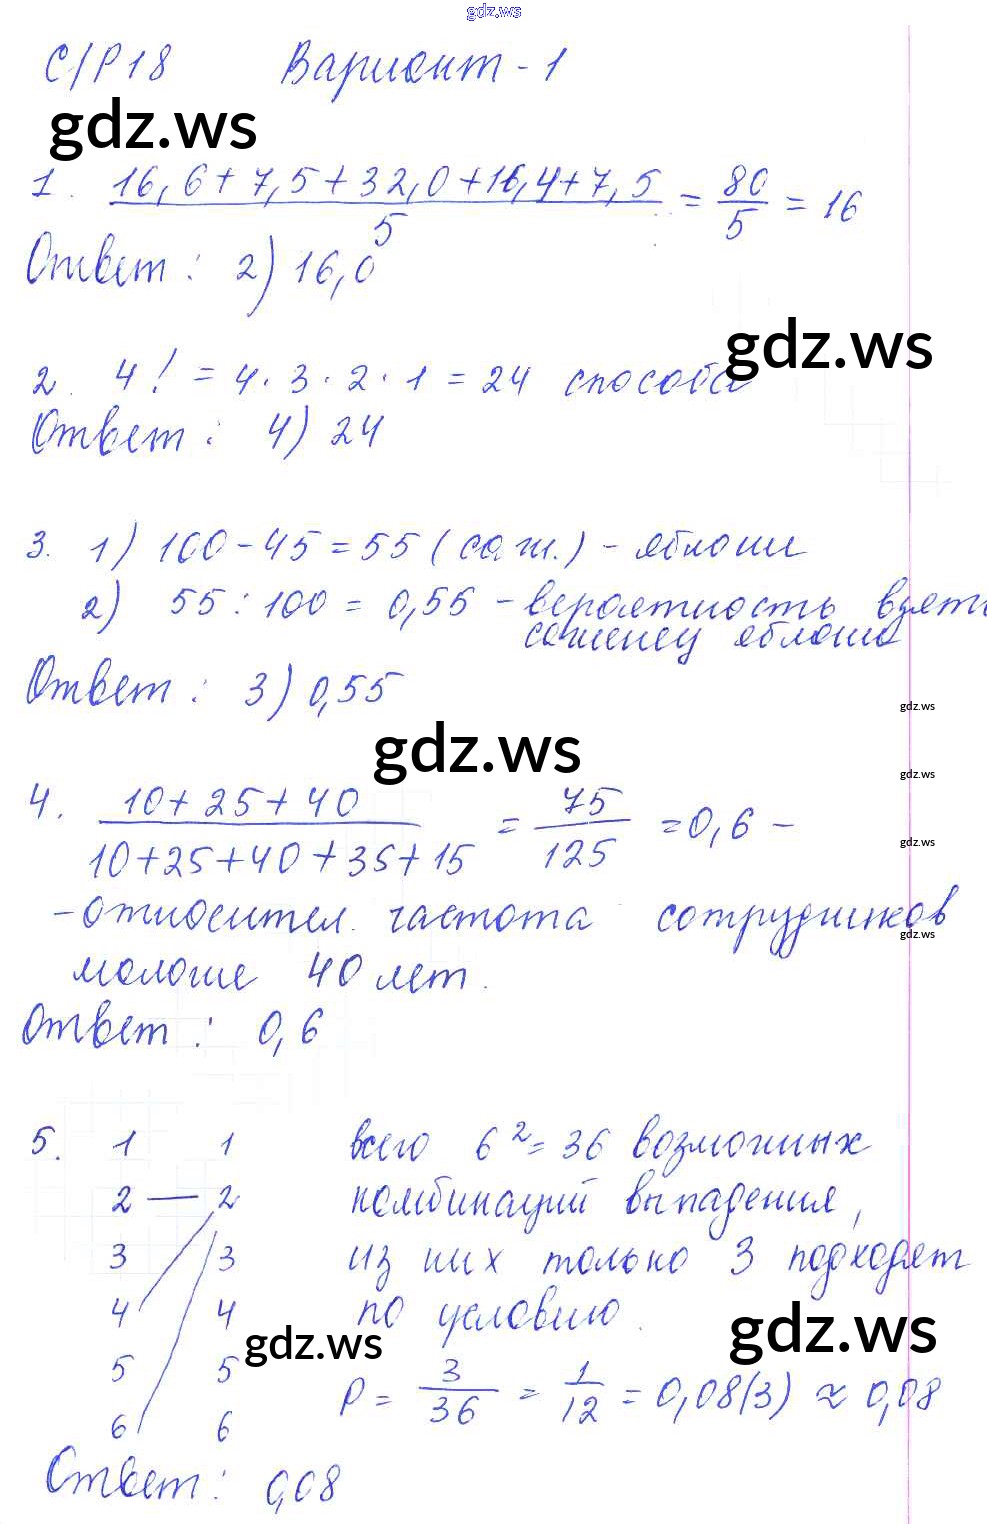 gdz.ws
С/Р18 Вариант - 1
gdz.ws
1. 16,6+7,5+32,0+16,4+7,5 / 5 = 80/5 = 16
Ответ: 2) 16,0
gdz.ws
2. 4! = 4·3·2·1 = 24 способа
Ответ: 4) 24
3. 1) 100-45=55 (саж.) - яблони
2) 55:100=0,55 - вероятность взять
саженец яблони
Ответ: 3) 0,55
gdz.ws
gdz.ws
gdz.ws
4. 10+25+40 / 10+25+40+35+15 = 75/125 = 0,6 -
gdz.ws
- относител. частота сотрудников
gdz.ws
моложе 40 лет.
Ответ: 0,6
5. 1 1 всего 6²=36 возможных
2 — 2 комбинаций выпадения,
3 3 из них только 3 подходят
4 4 по условию.
gdz.ws
gdz.ws
5 5 P = 3/36 = 1/12 = 0,08(3) ≈ 0,08
6 6
Ответ: 0,08